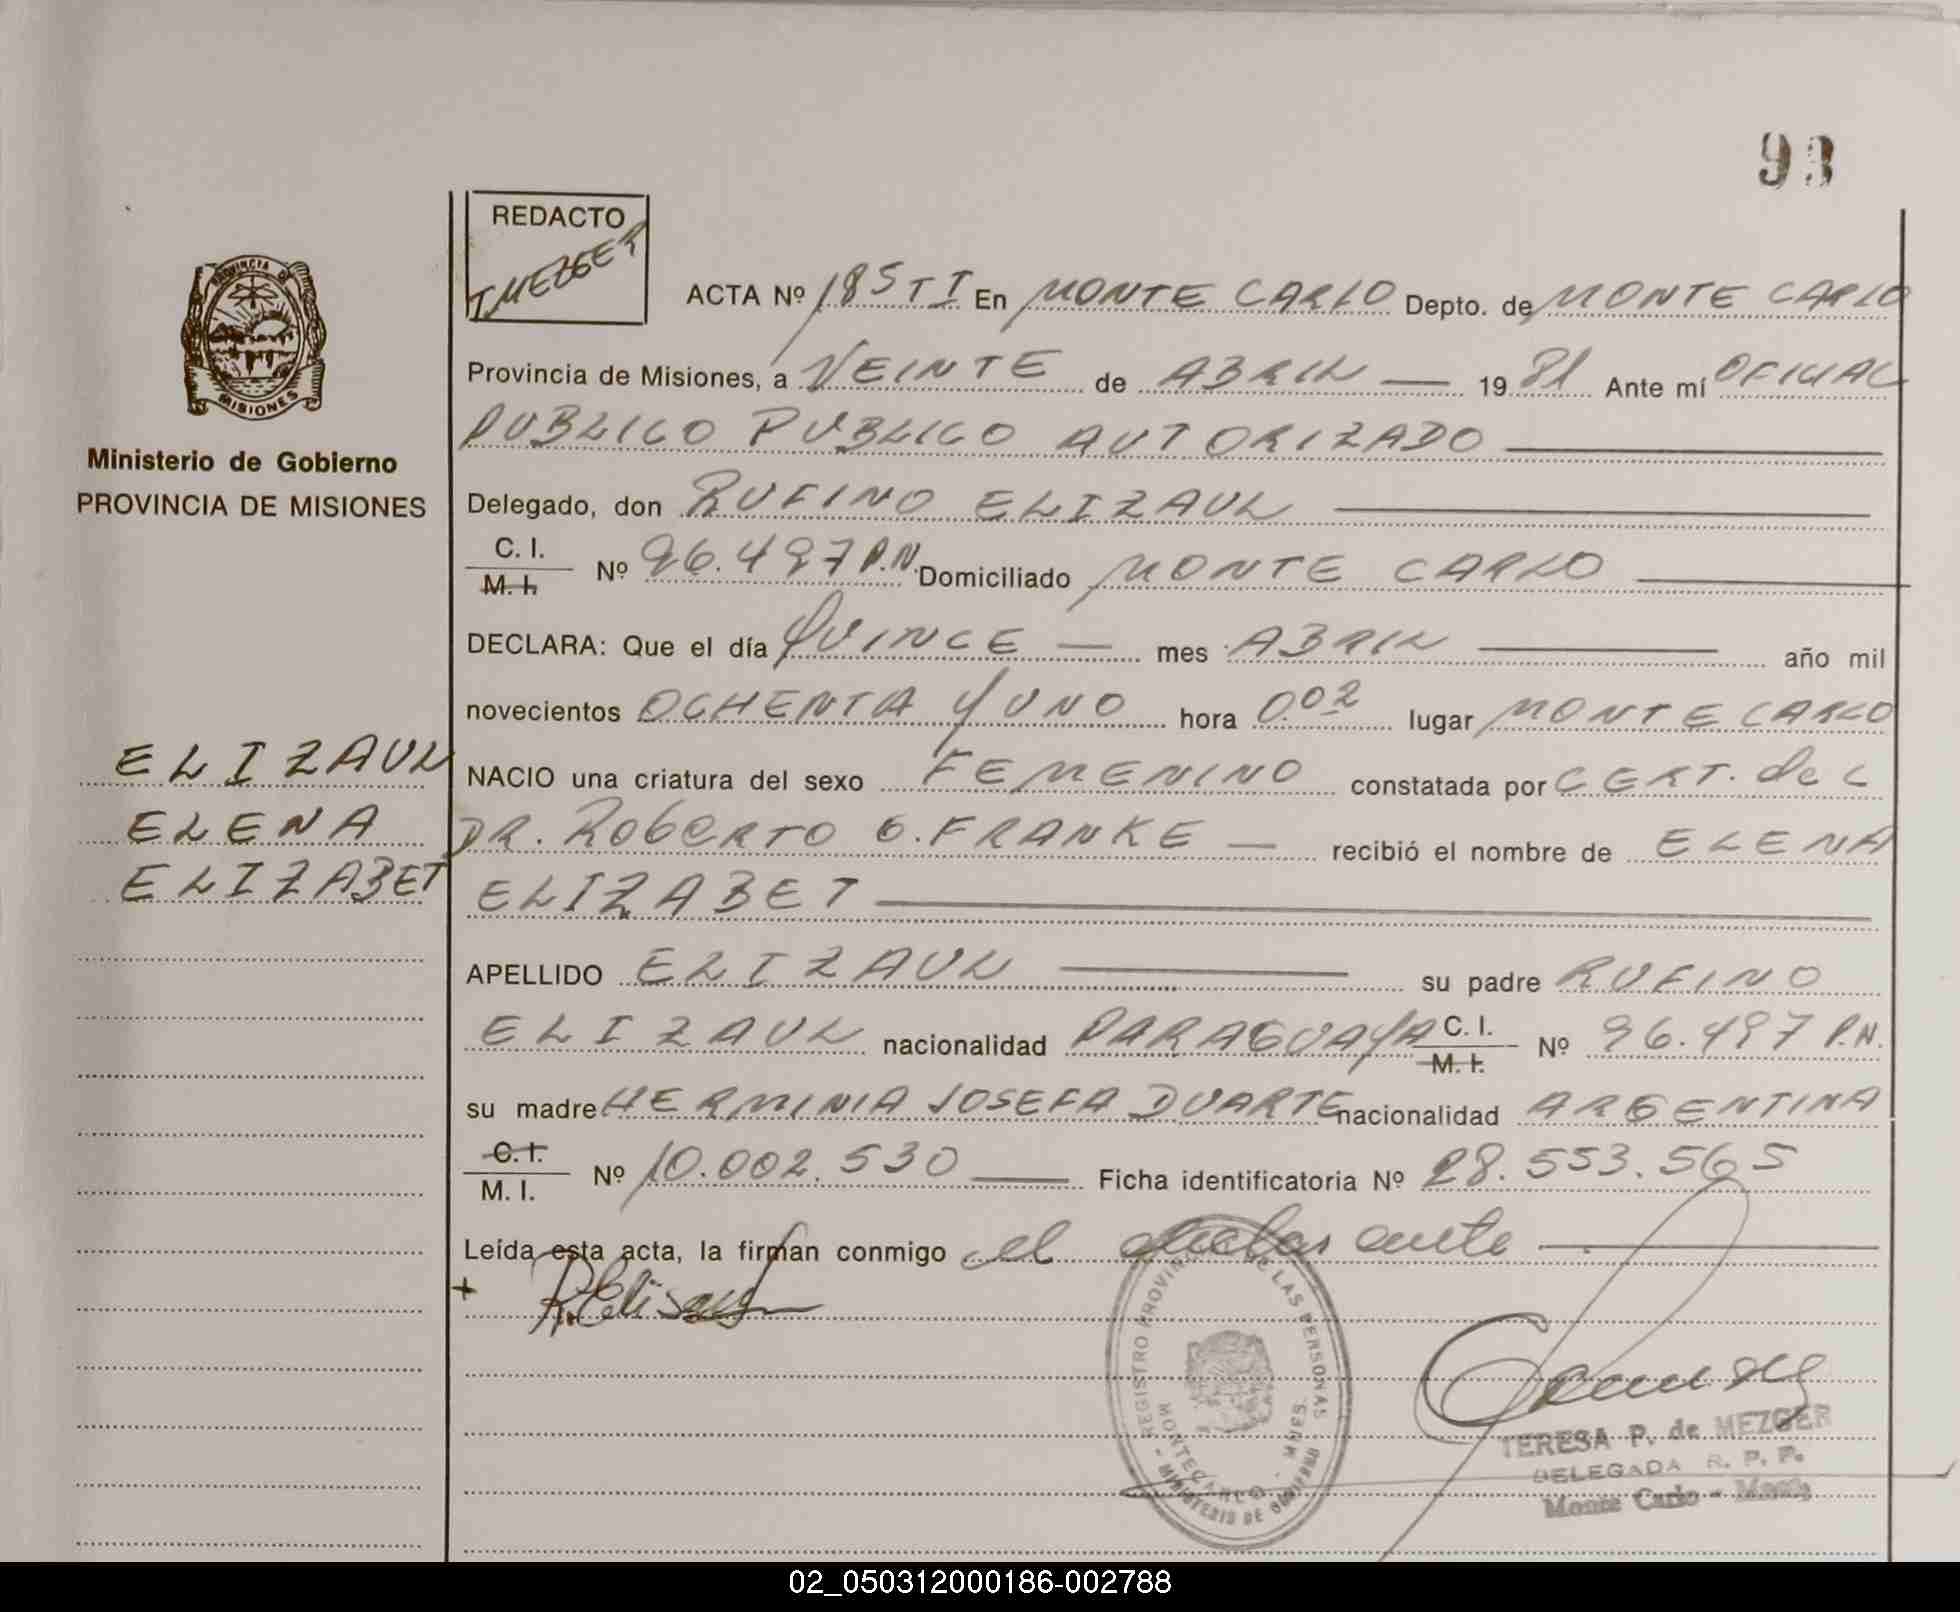 93
REDACTO
T MEZGER
PROVINCIA DE
MISIONES
Ministerio de Gobierno
PROVINCIA DE MISIONES
ELIZAUL
ELENA
ELIZABET
ACTA Nº 185 T I En MONTE CARLO Depto. de MONTE CARLO
Provincia de Misiones, a VEINTE de ABRIL 19 81 Ante mí OFICIAL
PUBLICO PUBLICO AUTORIZADO
Delegado, don RUFINO ELIZAUL
C. I.
M. I. Nº 96.497 P.N. Domiciliado MONTE CARLO
DECLARA: Que el día QUINCE mes ABRIL año mil
novecientos OCHENTA Y UNO hora 0.02 lugar MONTE CARLO
NACIO una criatura del sexo FEMENINO constatada por CERT. del
DR. ROBERTO O. FRANKE recibió el nombre de ELENA
ELIZABET
APELLIDO ELIZAUL su padre RUFINO
ELIZAUL nacionalidad PARAGUAYA C. I. M. I. Nº 96.497 P.N.
su madre HERMINIA JOSEFA DUARTE nacionalidad ARGENTINA
C. I.
M. I. Nº 10.002.530 Ficha identificatoria Nº 28.553.565
Leída esta acta, la firman conmigo el declarante
+ R. Elisaul
REGISTRO PROVINCIAL DE LAS PERSONAS
MONTECARLO - MNES.
- MINISTERIO DE GOBIERNO
TERESA P. de MEZGER
DELEGADA R. P. P.
Monte Carlo - Mnes.
02_050312000186-002788